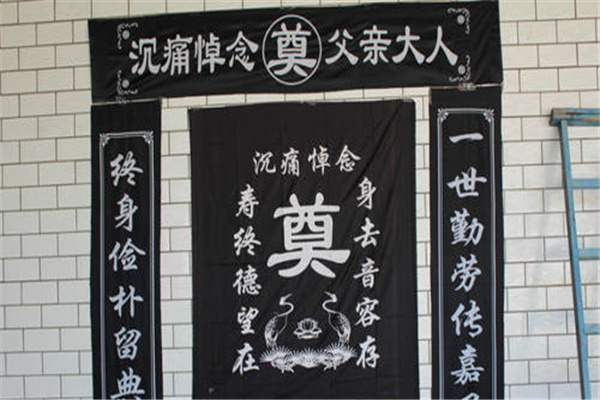 沉痛悼念奠父亲大人
一世勤劳传嘉
沉痛悼念
身去音容存
奠
寿终德望在
终身俭朴留典